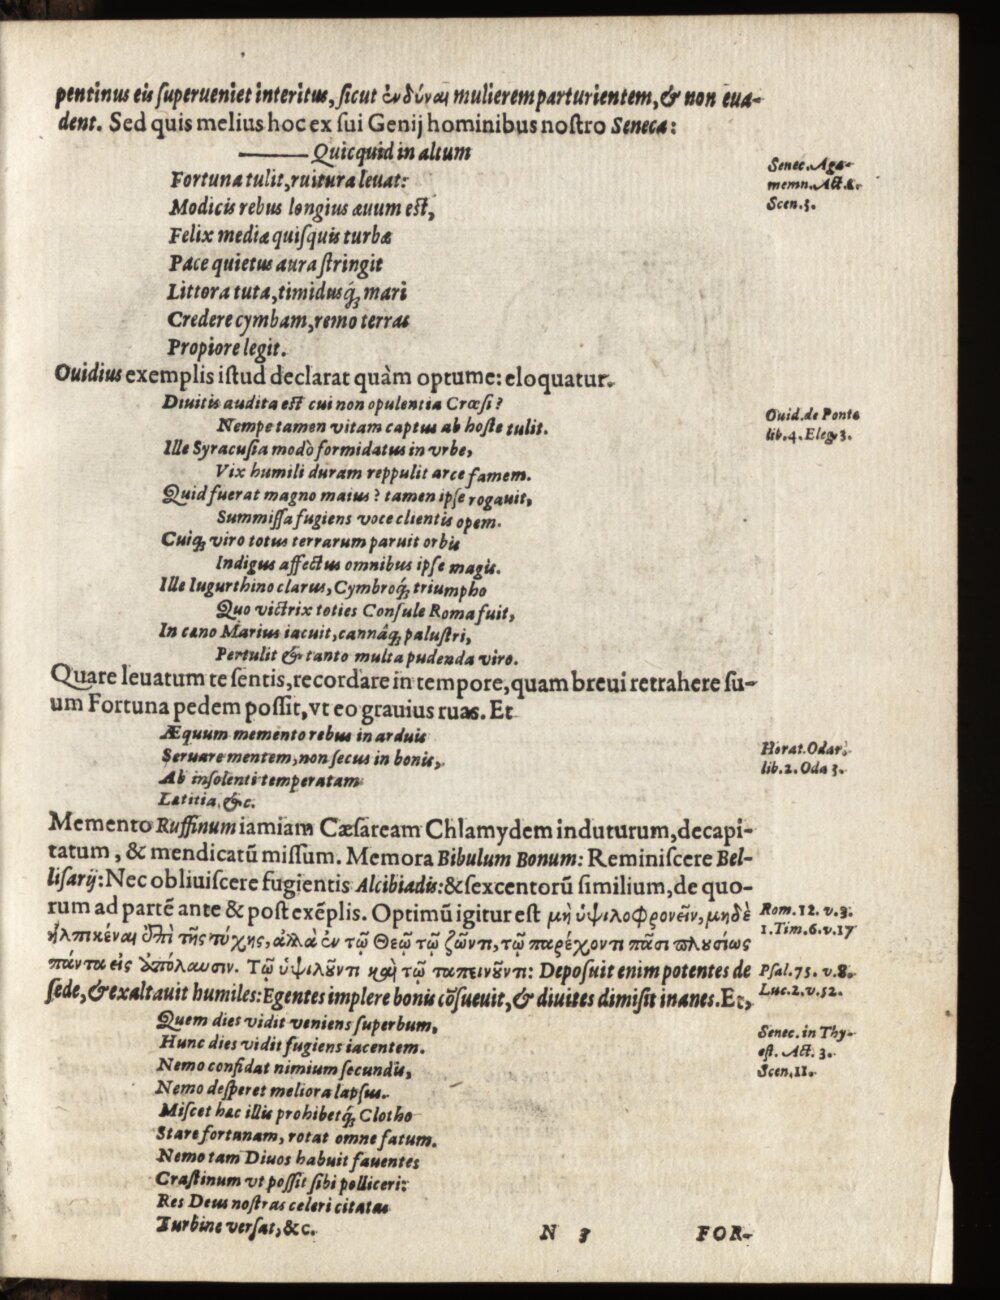 pentinus eis superueniet interitus, sicut ἐνδύναι mulierem parturientem, & non eua-
dent. Sed quis melius hoc ex sui Genij hominibus nostro Seneca:
——— Quicquid in altum
Senec. Aga-
Fortuna tulit, ruitura leuat:
memn. Act.
Modicis rebus longius æuum est,
Scen. 3.
Felix mediæ quisquis turbæ
Pace quietus aura stringit
Littora tuta, timidusq́; mari
Credere cymbam, remo terras
Propiore legit.
Ouidius exemplis istud declarat quàm optume: eloquatur.
Diuitis audita est cui non opulentia Crœsi?
Ouid. de Ponto
Nempe tamen vitam captus ab hoste tulit.
lib. 4. Eleg. 3.
Ille Syracusia modò formidatus in vrbe,
Vix humili duram reppulit arce famem.
Quid fuerat magno maius? tamen ipse rogauit,
Summissa fugiens voce clientis opem.
Cuiq; viro totus terrarum paruit orbis
Indigus affectus omnibus ipse magis.
Ille Iugurthino clarus, Cymbroq́; triumpho
Quo victrix toties Consule Roma fuit,
In cæno Marius iacuit, cannâq; palustri,
Pertulit & tanto multa pudenda viro.
Quare leuatum te sentis, recordare in tempore, quam breui retrahere su-
um Fortuna pedem possit, vt eo grauius ruas. Et
Æquum memento rebus in arduis
Horat. Odar.
Seruare mentem, non secus in bonis,
lib. 2. Oda 3.
Ab insolenti temperatam
Lætitia, &c.
Memento Ruffinum iamiam Cæsaream Chlamydem induturum, decapi-
tatum, & mendicatū missum. Memora Bibulum Bonum: Reminiscere Bel-
lisarij: Nec obliuiscere fugientis Alcibiadis: & sexcentorū similium, de quo-
rum ad partē ante & post exēplis. Optimū igitur est μὴ ὑψιλοφρονεῖν, μηδὲ
Rom. 12. v. 3.
ἠλπικέναι ἐπὶ τῆς τύχης, ἀλλὰ ἐν τῷ Θεῷ τῷ ζῶντι, τῷ παρέχοντι πᾶσι πλουσίως
1. Tim. 6. v. 17
πάντα εἰς ἀπόλαυσιν. Τῷ ὑψιλοῦντι καὶ τῷ ταπεινοῦντι: Deposuit enim potentes de
Psal. 75. v. 8.
sede, & exaltauit humiles: Egentes implere bonis cōsueuit, & diuites dimisit inanes. Et,
Luc. 2. v. 52.
Quem dies vidit veniens superbum,
Senec. in Thy-
Hunc dies vidit fugiens iacentem.
est. Act. 3.
Nemo confidat nimium secundis,
Scen. 11.
Nemo desperet meliora lapsus.
Miscet hæc illis prohibetq́; Clotho
Stare fortunam, rotat omne fatum.
Nemo tam Diuos habuit fauentes
Crastinum vt possit sibi polliceri:
Res Deus nostras celeri citatas
Turbine versat, &c.
N 3 FOR-